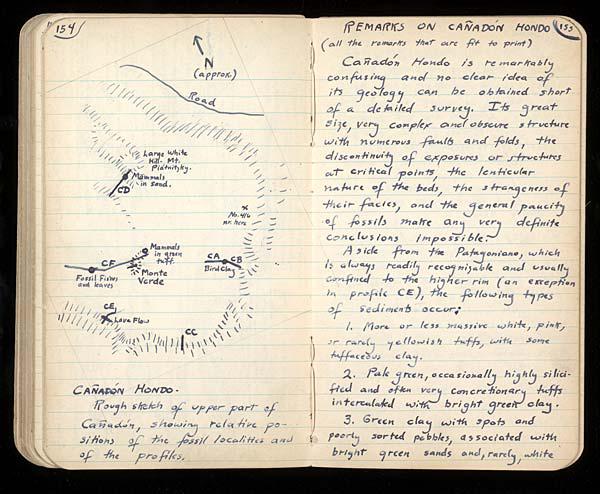 154
N
(approx.)
Road
Large White
Hill. Mt.
Piatnitzky.
Mammals
in sand.
CD
x
No. 416
nr. here
Mammals
in green
tuff.
CF
Fossil Fishes
and leaves
Monte
Verde
CA
CB
Bird Clay
CE
Lava Flow
CC
CAÑADÓN HONDO.
Rough sketch of upper part of
Cañadón, showing relative po-
sitions of the fossil localities and
of the profiles.
REMARKS ON CAÑADÓN HONDO
155
(all the remarks that are fit to print)
Cañadón Hondo is remarkably
confusing and no clear idea of
its geology can be obtained short
of a detailed survey. Its great
size, very complex and obscure structure
with numerous faults and folds, the
discontinuity of exposures or structures
at critical points, the lenticular
nature of the beds, the strangeness of
their facies, and the general paucity
of fossils make any very definite
conclusions impossible.
Aside from the Patagoniano, which
is always readily recognizable and usually
confined to the higher rim (an exception
in profile CE), the following types
of sediments occur:
1. More or less massive white, pink,
or rarely yellowish tuffs, with some
tuffaceous clay.
2. Pale green, occasionally highly silici-
fied and often very concretionary tuffs
intercalated with bright green clay.
3. Green clay with spots and
poorly sorted pebbles, associated with
bright green sands and, rarely, white